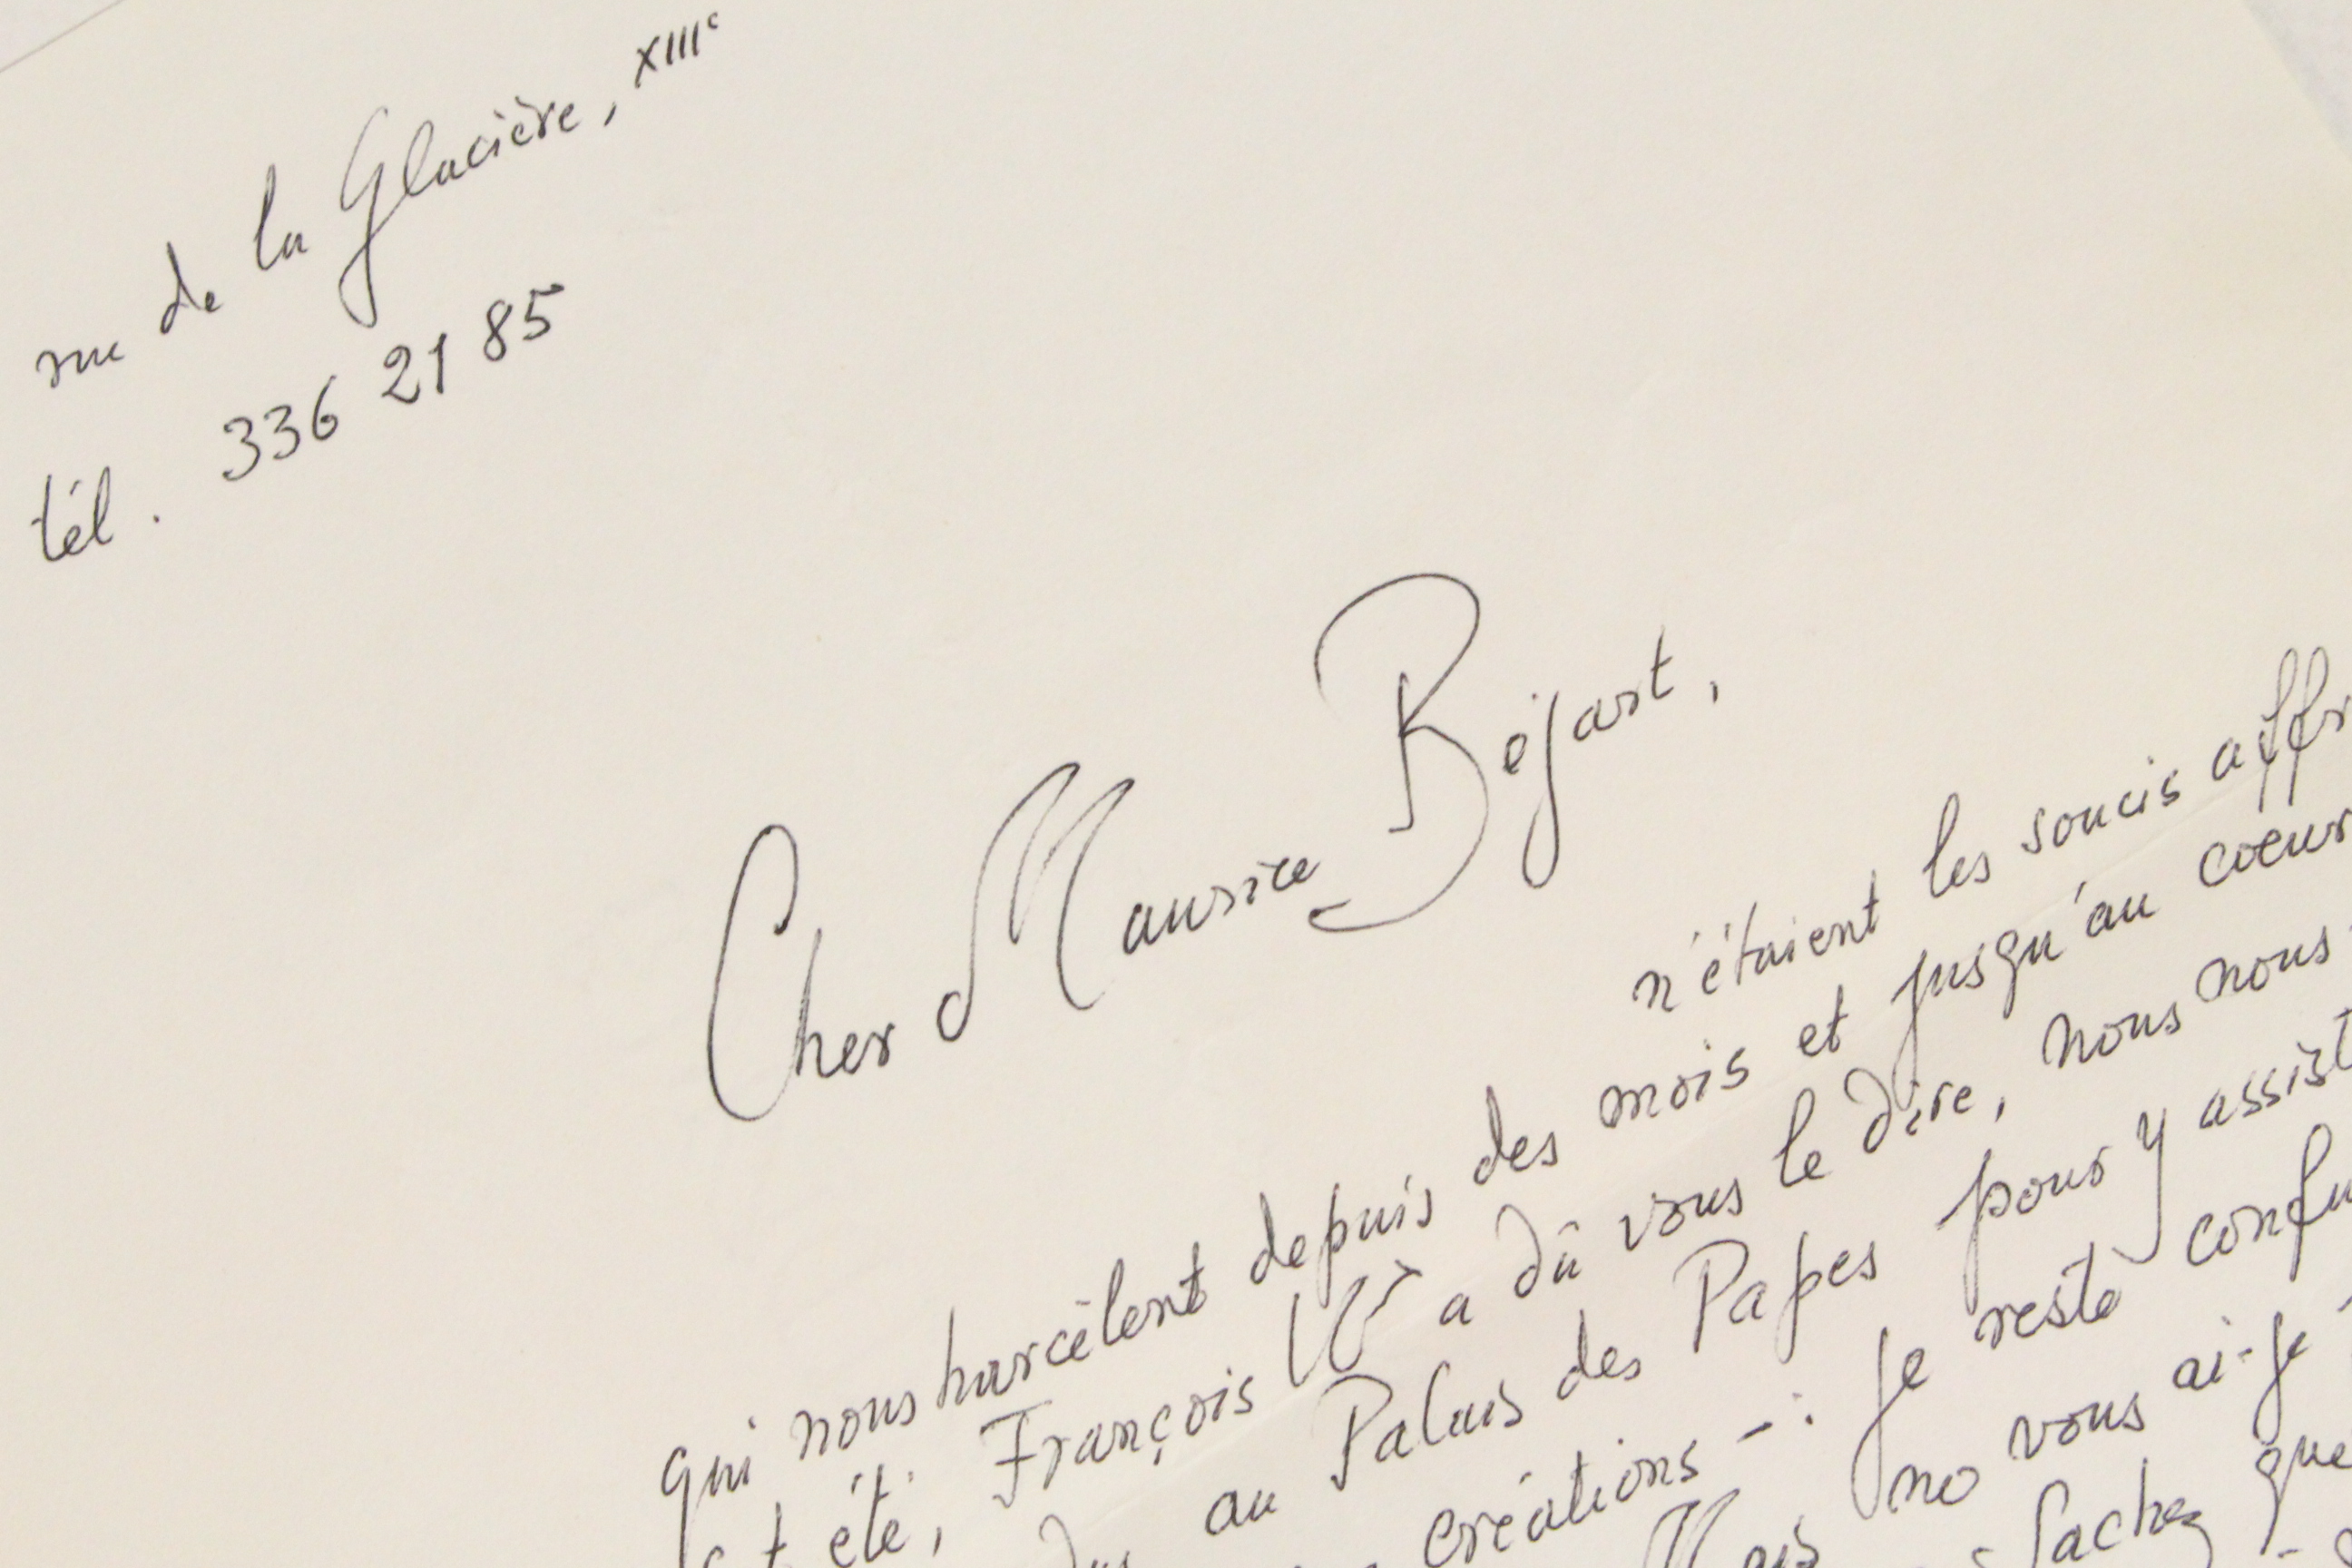 rue de la Glacière, XIIIe
tél. 336 21 85
Cher Maurice Béjart,
n'étaient les soucis affr
qui nous harcèlent depuis des mois et jusqu'au coeur
été, François Wr a dû vous le dire, nous nous
au Palais des Papes pour y assist
créations -: je reste confu
Mais ne vous ai-je
Sachez que